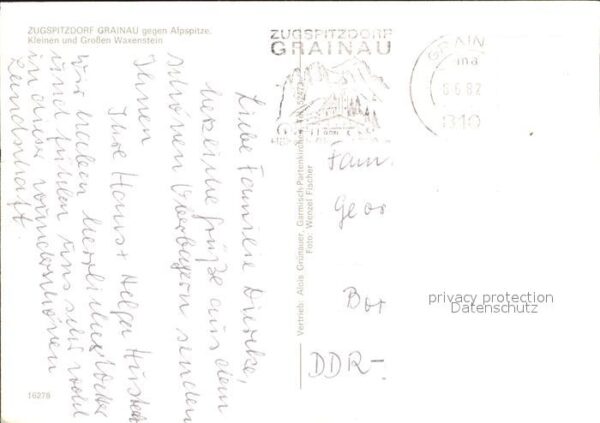 ZUGSPITZDORF GRAINAU gegen Alpspitze,
Kleinen und Großen Waxenstein
ZUGSPITZDORF
GRAINAU
GRAIN
6.6.82
Liebe Familie
herzliche Grüße aus dem
schönen Oberbayern senden
Ihnen
Ihre Hans + Helga
Wir haben herrliches Wetter
und fühlen uns sehr wohl
in dieser wunderschönen
Landschaft.
Vertrieb: Alois Grünauer, Garmisch-Partenkirchen
Foto: Wenzel Fischer
Fam.
Geor
DDR-
privacy protection
Datenschutz
16278